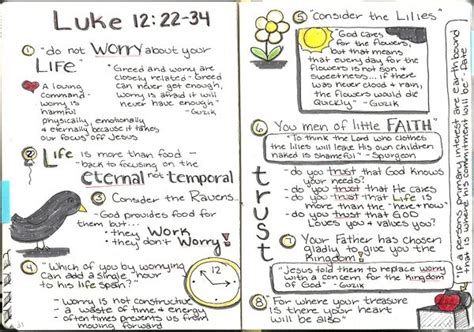 Luke 12:22-34
① "do not worry about your
LIFE"
"Greed and worry are
closely related - Greed
can never get enough,
worry is afraid it will
never have enough"
- Guzik
A loving
command -
worry is
harmful
physically, emotionally
& eternally because it takes
our focus off Jesus
② Life is more than food -
- back to focusing on the
eternal not temporal
③ Consider the Ravens...
- God provides food for
them but...
• they Work
• they don't Worry!
④ "Which of you by worrying
can add a single hour
to his life span?"
- Worry is not constructive
- a waste of time & energy
- often times prevents us from
31
⑤ "Consider the Lilies"
"God cares
for the flowers,
but that means
that every day for
the flowers is not sun &
sweetness... if there
was never cloud & rain,
the flowers would die
quickly" - Guzik
⑥ You men of little FAITH"
"To think the Lord who clothes
the lilies will leave His own children
naked is shameful" - Spurgeon
trust
- do you trust that God knows
your needs?
- do you trust that He cares
- do you trust that Life is
more than the "here & now"
- do you trust that GOD
Loves you & values you?
⑦ Your Father has chosen
gladly to give you the
Kingdom!
"Jesus told them to replace worry
with a concern for the kingdom
of God" - Guzik
⑧ For where your treasure
is there your heart
will be also"
If a persons primary interest are earthbound
his commitment will be